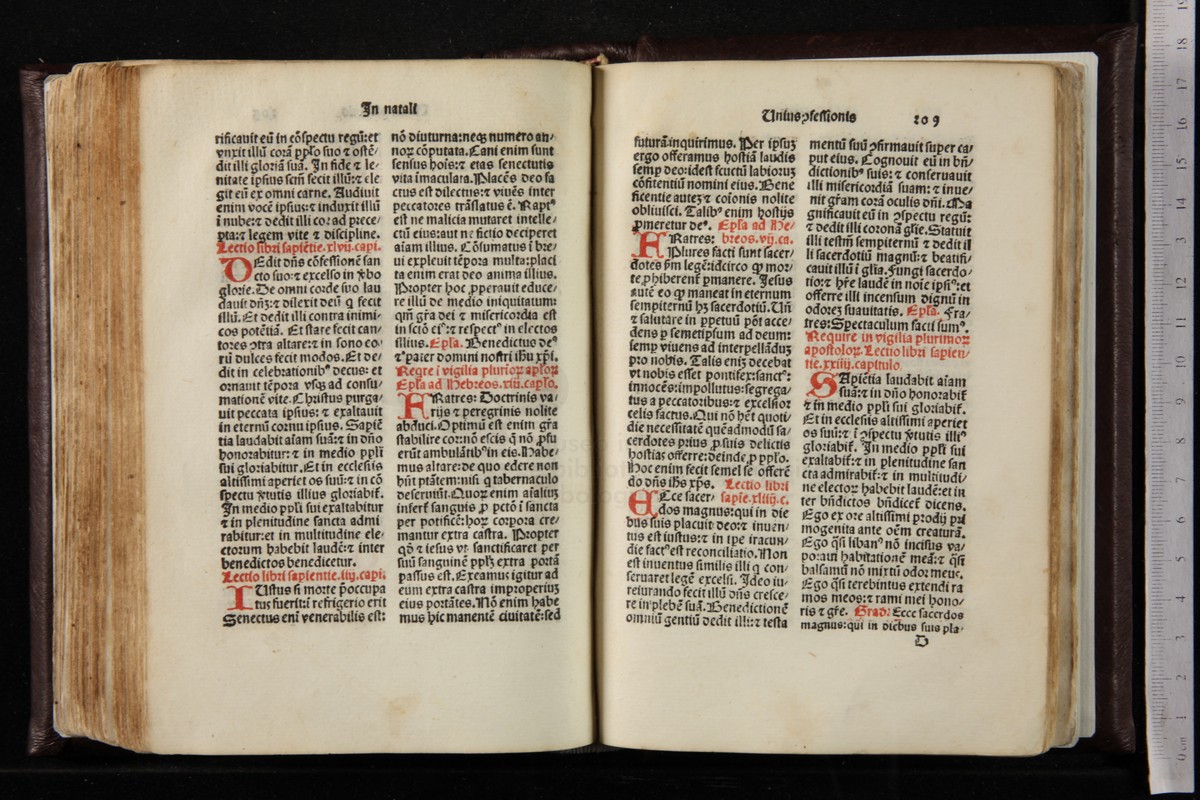 In natali
rificauit eũ in cõspectu regũ:et
vnxit illũ corã pplo suo ⁊ ostẽ-
dit illi gloriã suã. In fide ⁊ le-
nitate ipsius scm̃ fecit illũ:⁊ ele
git eũ ex omni carne. Audiuit
enim vocẽ ipsius:⁊ induxit illũ
ĩ nube:⁊ dedit illi corad prece-
pta:⁊ legem vite ⁊ discipline.
Lectio libri sapiẽtie.xlvij.capi.
DEdit dñs cõfessionẽ san
cto suo:⁊ excelso in ꝟbo
glorie. De omni corde suo lau
dauit dñz:⁊ dilexit deũ q̃ fecit
illũ. Et dedit illi contra inimi-
cos potẽtiã. Et stare fecit can-
tores ꝯtra altare:⁊ in sono eo-
rũ dulces fecit modos. Et de-
dit in celebrationib⁹ decus: et
ornauit tẽpora vsq̃ ad consu-
mationẽ vite. Christus purga-
uit peccata ipsius: ⁊ exaltauit
in eternũ cornu ipsius. Sapiẽ
tia laudabit aĩam suã:⁊ in dño
honorabitur:⁊ in medio ppl̃i
sui gloriabitur. Et in ecclesiis
altissimi aperiet os suũ:⁊ in cõ
spectu ꝟtutis illius gloriabit̃.
In medio ppl̃i sui exaltabitur
⁊ in plenitudine sancta admi
rabitur:et in multitudine ele-
ctorum habebit laudẽ:⁊ inter
benedictos benedicetur.
Lectio libri sapientie.iiij.capi.
IUstus si morte p̃occupa
tus fuerit:ĩ refrigerio erit
Senectus enĩ venerabilis est:
nõ diuturna:neqȝ numero an-
noꝝ cõputata. Cani enim sunt
sensus hoĩs:⁊ etas senectutis
vita ĩmaculata. Placẽs deo fa
ctus est dilectus:⁊ viuẽs inter
peccatores trãslatus ẽ. Rapt⁹
est ne malicia mutaret intelle-
ctũ eius:aut ne fictio deciperet
aĩam illius. Cõsumatus ĩ bre-
ui expleuit tẽpora multa:placi
ta enim erat deo anima illius.
Propter hoc ꝓperauit educe-
re illũ de medio iniquitatum:
qm̃ gr̃a dei ⁊ misericordia est
in sctõ ei⁹:⁊ respect⁹ in electos
illius. Epl̃a. Benedictus de⁹
⁊ pater domini nostri ihũ xp̃i.
Reqre ĩ vigilia plurioꝝ aploꝝ
Epl̃a ad Hebreos.xiij.caplo.
FRatres: Doctrinis va-
rijs ⁊ peregrinis nolite
abduci. Optimũ est enim gr̃a
stabilire cor:nõ escis q̃ nõ ꝓfu
erũt ambulãtib⁹ in eis. Habe-
mus altare:de quo edere non
hñt ptãtem:nisi q̃ tabernaculo
deseruiũt. Quoꝝ enim aĩaliuȝ
infert̃ sanguis ꝑ petõ ĩ sancta
per pontificẽ:hoꝝ corpora cre-
mantur extra castra. Propter
qõ ⁊ iesus vt sanctificaret per
suũ sanguinẽ pplȝ extra portã
passus est. Exeamus igitur ad
eum extra castra improperiuȝ
eius portãtes. Nõ enim habe
mus hic manentẽ ciuitatẽ:sed
Unius ꝯfessionis 209
futurã inquirimus. Per ipsuȝ
ergo offeramus hostiã laudis
semp deo:idest fructũ labioruȝ
cõfitentiũ nomini eius. Bene
ficentie auteȝ ⁊ cõionis nolite
obliuisci. Talib⁹ enim hostijs
ꝓmeretur de⁹. Epl̃a ad He-
FRatres: breos.vij.ca.
Plures facti sunt sacer-
dotes ẜm legẽ:idcirco ꝙ mor-
te ꝓhiberent̃ ꝑmanere. Jesus
autẽ eo ꝙ maneat in eternum
sempiternũ hȝ sacerdotiũ. Uñ
⁊ saluare in ꝑpetuũ põt acce-
dens ꝑ semetipsum ad deum:
semꝑ viuens ad interpellãduȝ
pro nobis. Talis eniȝ decebat
vt nobis esset pontifex:sanct⁹:
innocẽs:impollutus:segrega-
tus a peccatoribus:⁊ excelsior
celis factus. Qui nõ hẽt quoti-
die necessitatẽ quẽadmodũ sa-
cerdotes prius ꝓ suis delictis
hostias offerre:deinde ꝓ pplo.
Hoc enim fecit semel se offerẽ
do dñs ihs xps. Lectio libri
ECce sacer- sapie.xliiij.c.
dos magnus:qui in die
bus suis placuit deo:⁊ inuen-
tus est iustus:⁊ in tpe iracun-
die fact⁹ est reconciliatio. Non
est inuentus similis illi q̃ con-
seruaret legẽ excelsi. Ideo iu-
reiurando fecit illũ dñs cresce-
re in plebẽ suã. Benedictionẽ
omniũ gentiũ dedit illi:⁊ testa
mentũ suũ ꝯfirmauit super ca-
put eius. Cognouit eũ in bñ-
dictionib⁹ suis:⁊ conseruauit
illi misericordiã suam:⁊ inue-
nit gr̃am corã oculis dñi. Ma
gnificauit eũ in ꝯspectu regũ:
⁊ dedit illi coronã gl̃ie. Statuit
illi testm̃ sempiternũ ⁊ dedit il
li sacerdotiũ magnũ:⁊ beatifi-
cauit illũ ĩ gl̃ia. Fungi sacerdo-
tio:⁊ hr̃e laudẽ in noĩe ipsi⁹:et
offerre illi incensum dignũ in
odoreȝ suauitatis. Epl̃a. Fra-
tres:Spectaculum facti sum⁹.
Require in vigilia plurimoꝝ
apostoloꝝ. Lectio libri sapien-
tie.xxiiij.capitulo.
SApiẽtia laudabit aĩam
suã:⁊ in dño honorabit̃
⁊ in medio ppl̃i sui gloriabit̃.
Et in ecclesiis altissimi aperiet
os suũ:⁊ ĩ ꝯspectu ꝟtutis illi⁹
gloriabit̃. In medio ppl̃i sui
exaltabit̃:⁊ in plenitudine san
cta admirabit̃:⁊ in multitudi-
ne electoꝝ habebit laudẽ:et in
ter bñdictos bñdicet̃ dicens.
Ego ex ore altissimi prodij pri
mogenita ante oẽm creaturã.
Ego q̃si liban⁹ nõ incisus va-
poraui habitationẽ meã:⁊ q̃si
balsamũ nõ mixtũ odor meus.
Ego q̃si terebintus extendi ra
mos meos:⁊ rami mei hono-
ris ⁊ gr̃e. Grad: Ecce sacerdos
magnus:qui in diebus suis pla-
D